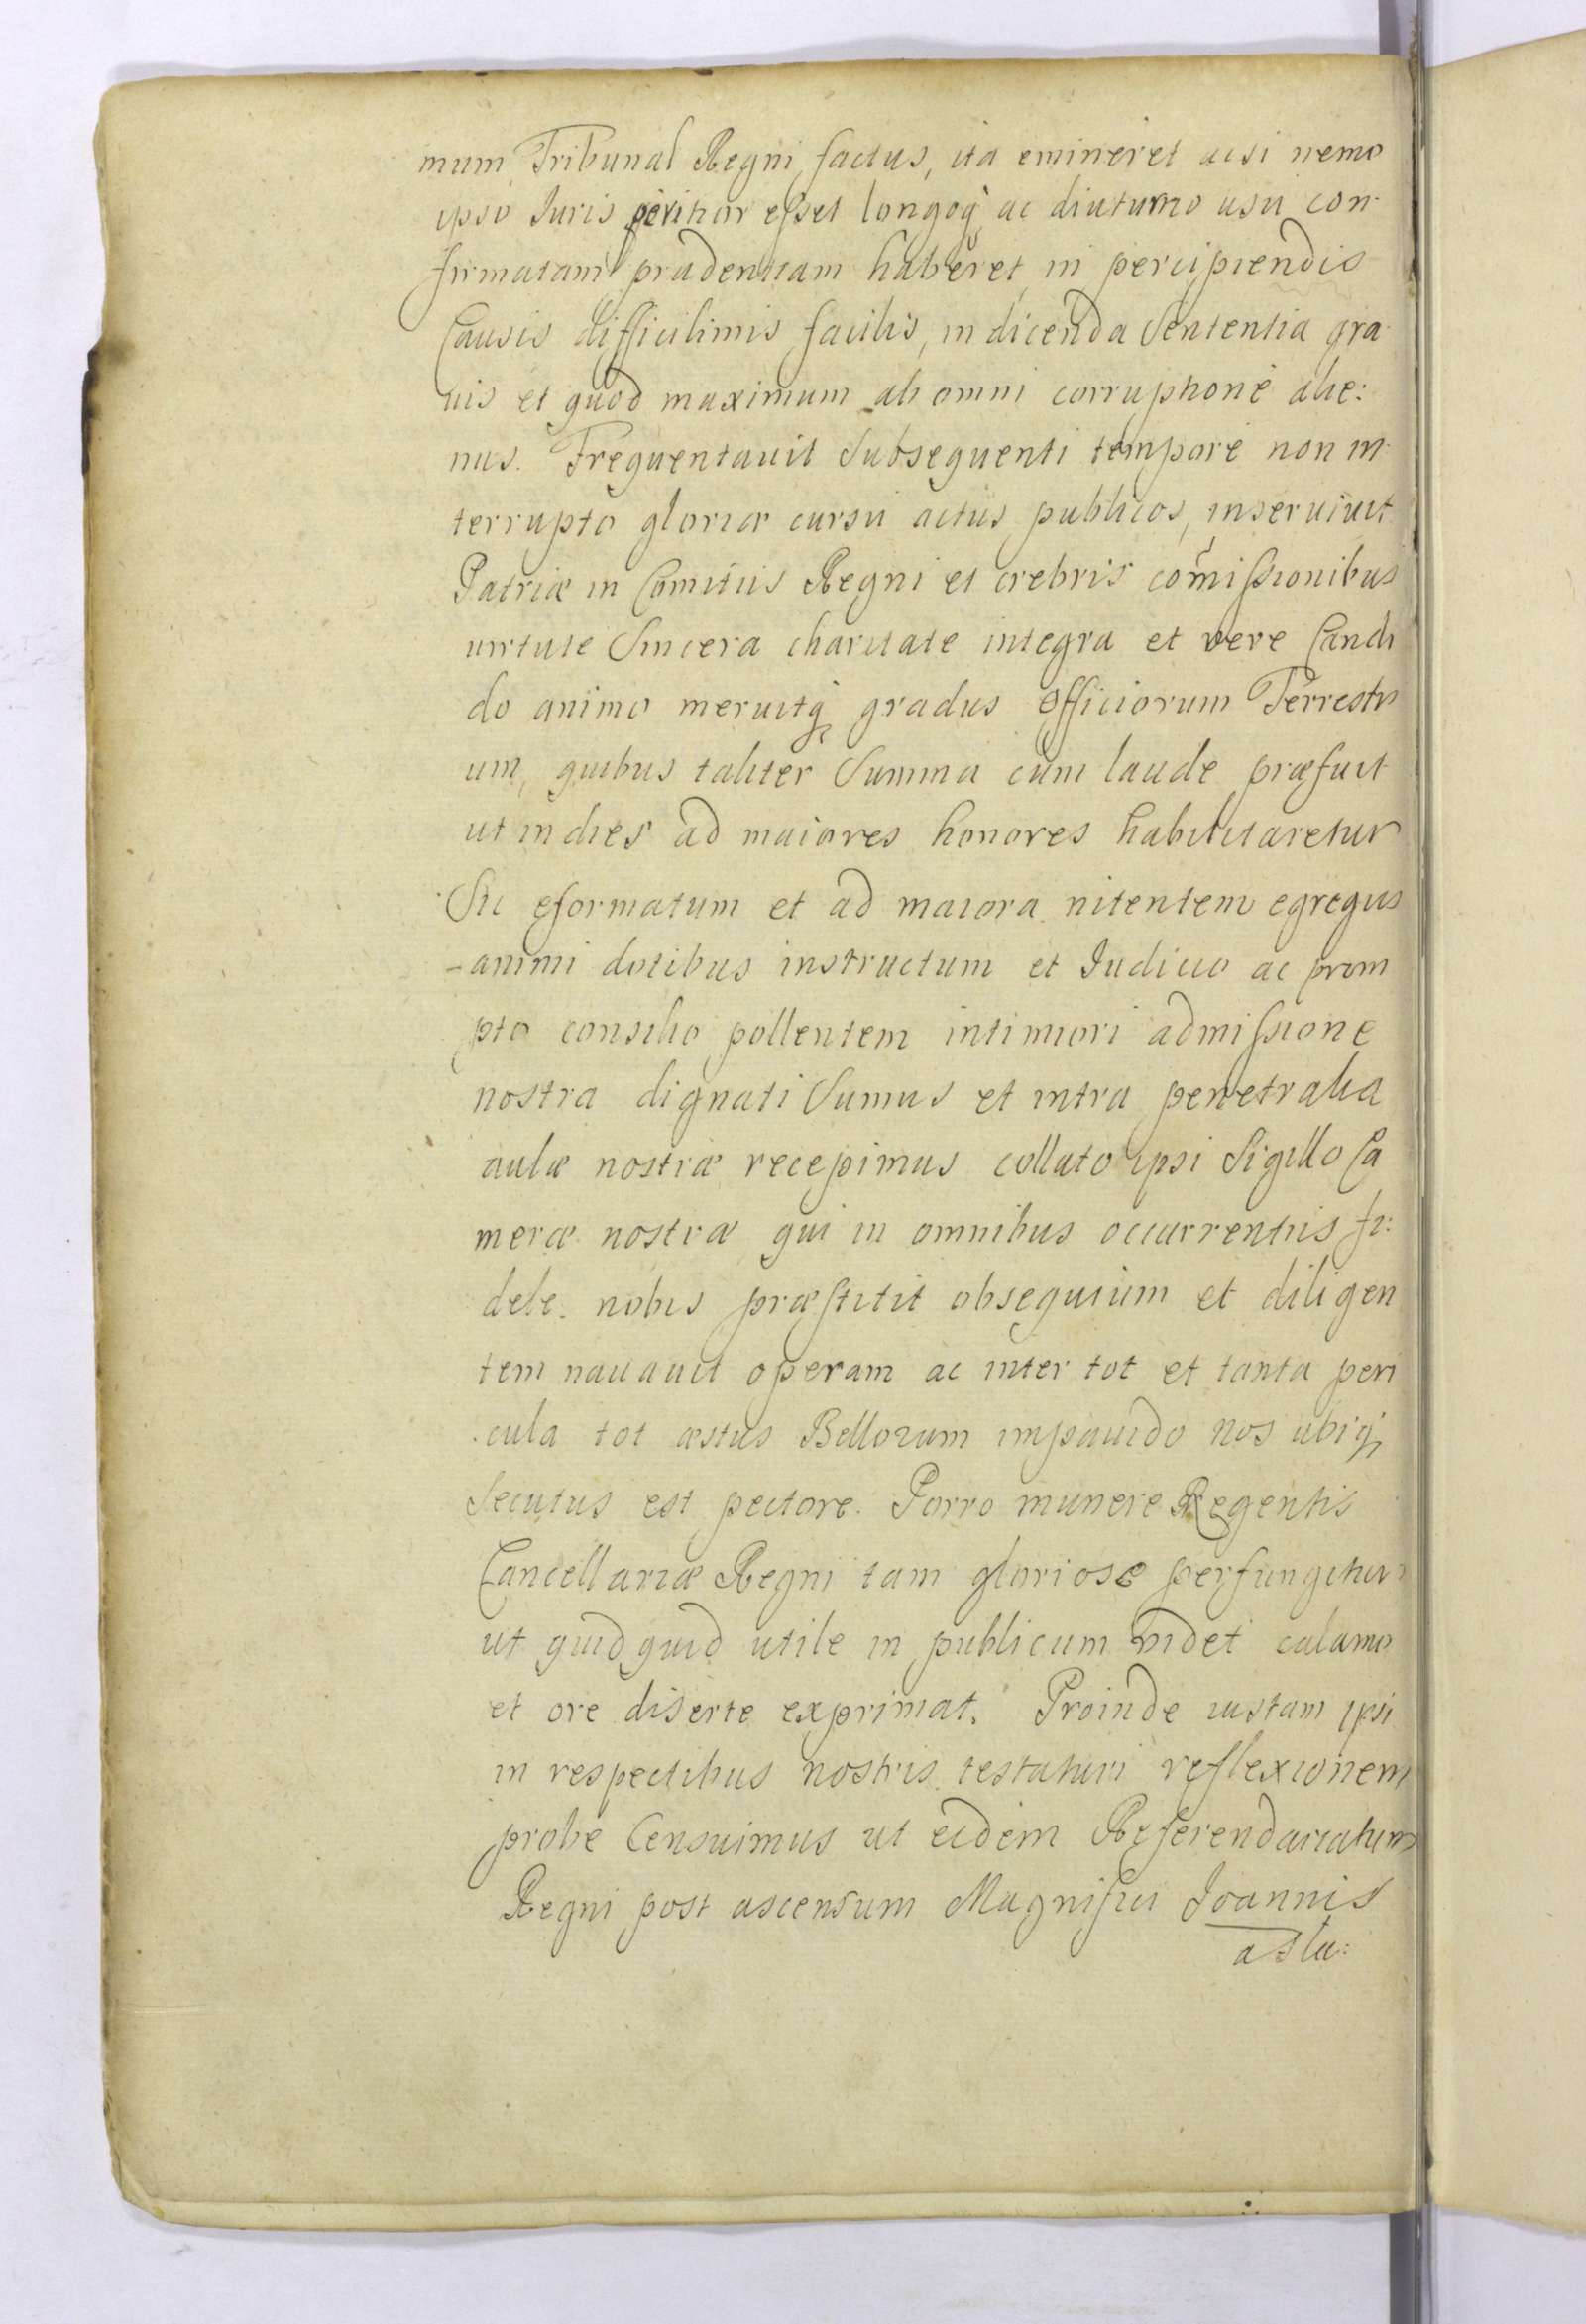 mum Tribunal Regni factus, ita emineret acsi nemo
ipso Iuris peritior esset longoq́ ac diuturno usu con-
firmatam prudentiam haberet, in percipiendis
Causis difficilimis facilis, in dicenda Sententia gra
uis et quod maximum ab omni corruptione alie:
nus. Frequentauit Subsequenti tempore non in-
terrupto gloriæ cursu actus publicos, inseruiuit
Patriæ in Comitiis Regni et crebris com̃issionibus
uirtute Sincera charitate integra et vere Candi
do animo meruitq́ gradus Officiorum Terrestri
um, quibus taliter Summa cum laude præfuit
ut in dies ad maiores honores habilitaretur
Sic eformatum et ad maiora nitentem egregiis
animi dotibus instructum et Iudicio ac prom
pto consilio pollentem intimiori admissione
nostra dignati Sumus et intra penetralia
aulæ nostræ recepimus collato ipsi Sigillo Ca
meræ nostræ qui in omnibus occurrentiis fi:
dele nobis præstitit obsequium et diligen
tem nauauit operam ac inter tot et tanta peri
cula tot æstus Bellorum impauido nos ubiq́
Secutus est pectore. Porro munere Regentis
Cancellariæ Regni tam gloriose perfungitur
ut quidquid utile in publicum videt calamo
et ore diserte exprimat. Proinde iustam ipsi
in respectibus nostris testaturi reflexionem
probe Censuimus ut eidem Referendariatum
Regni post ascensum Magnifici Joannis